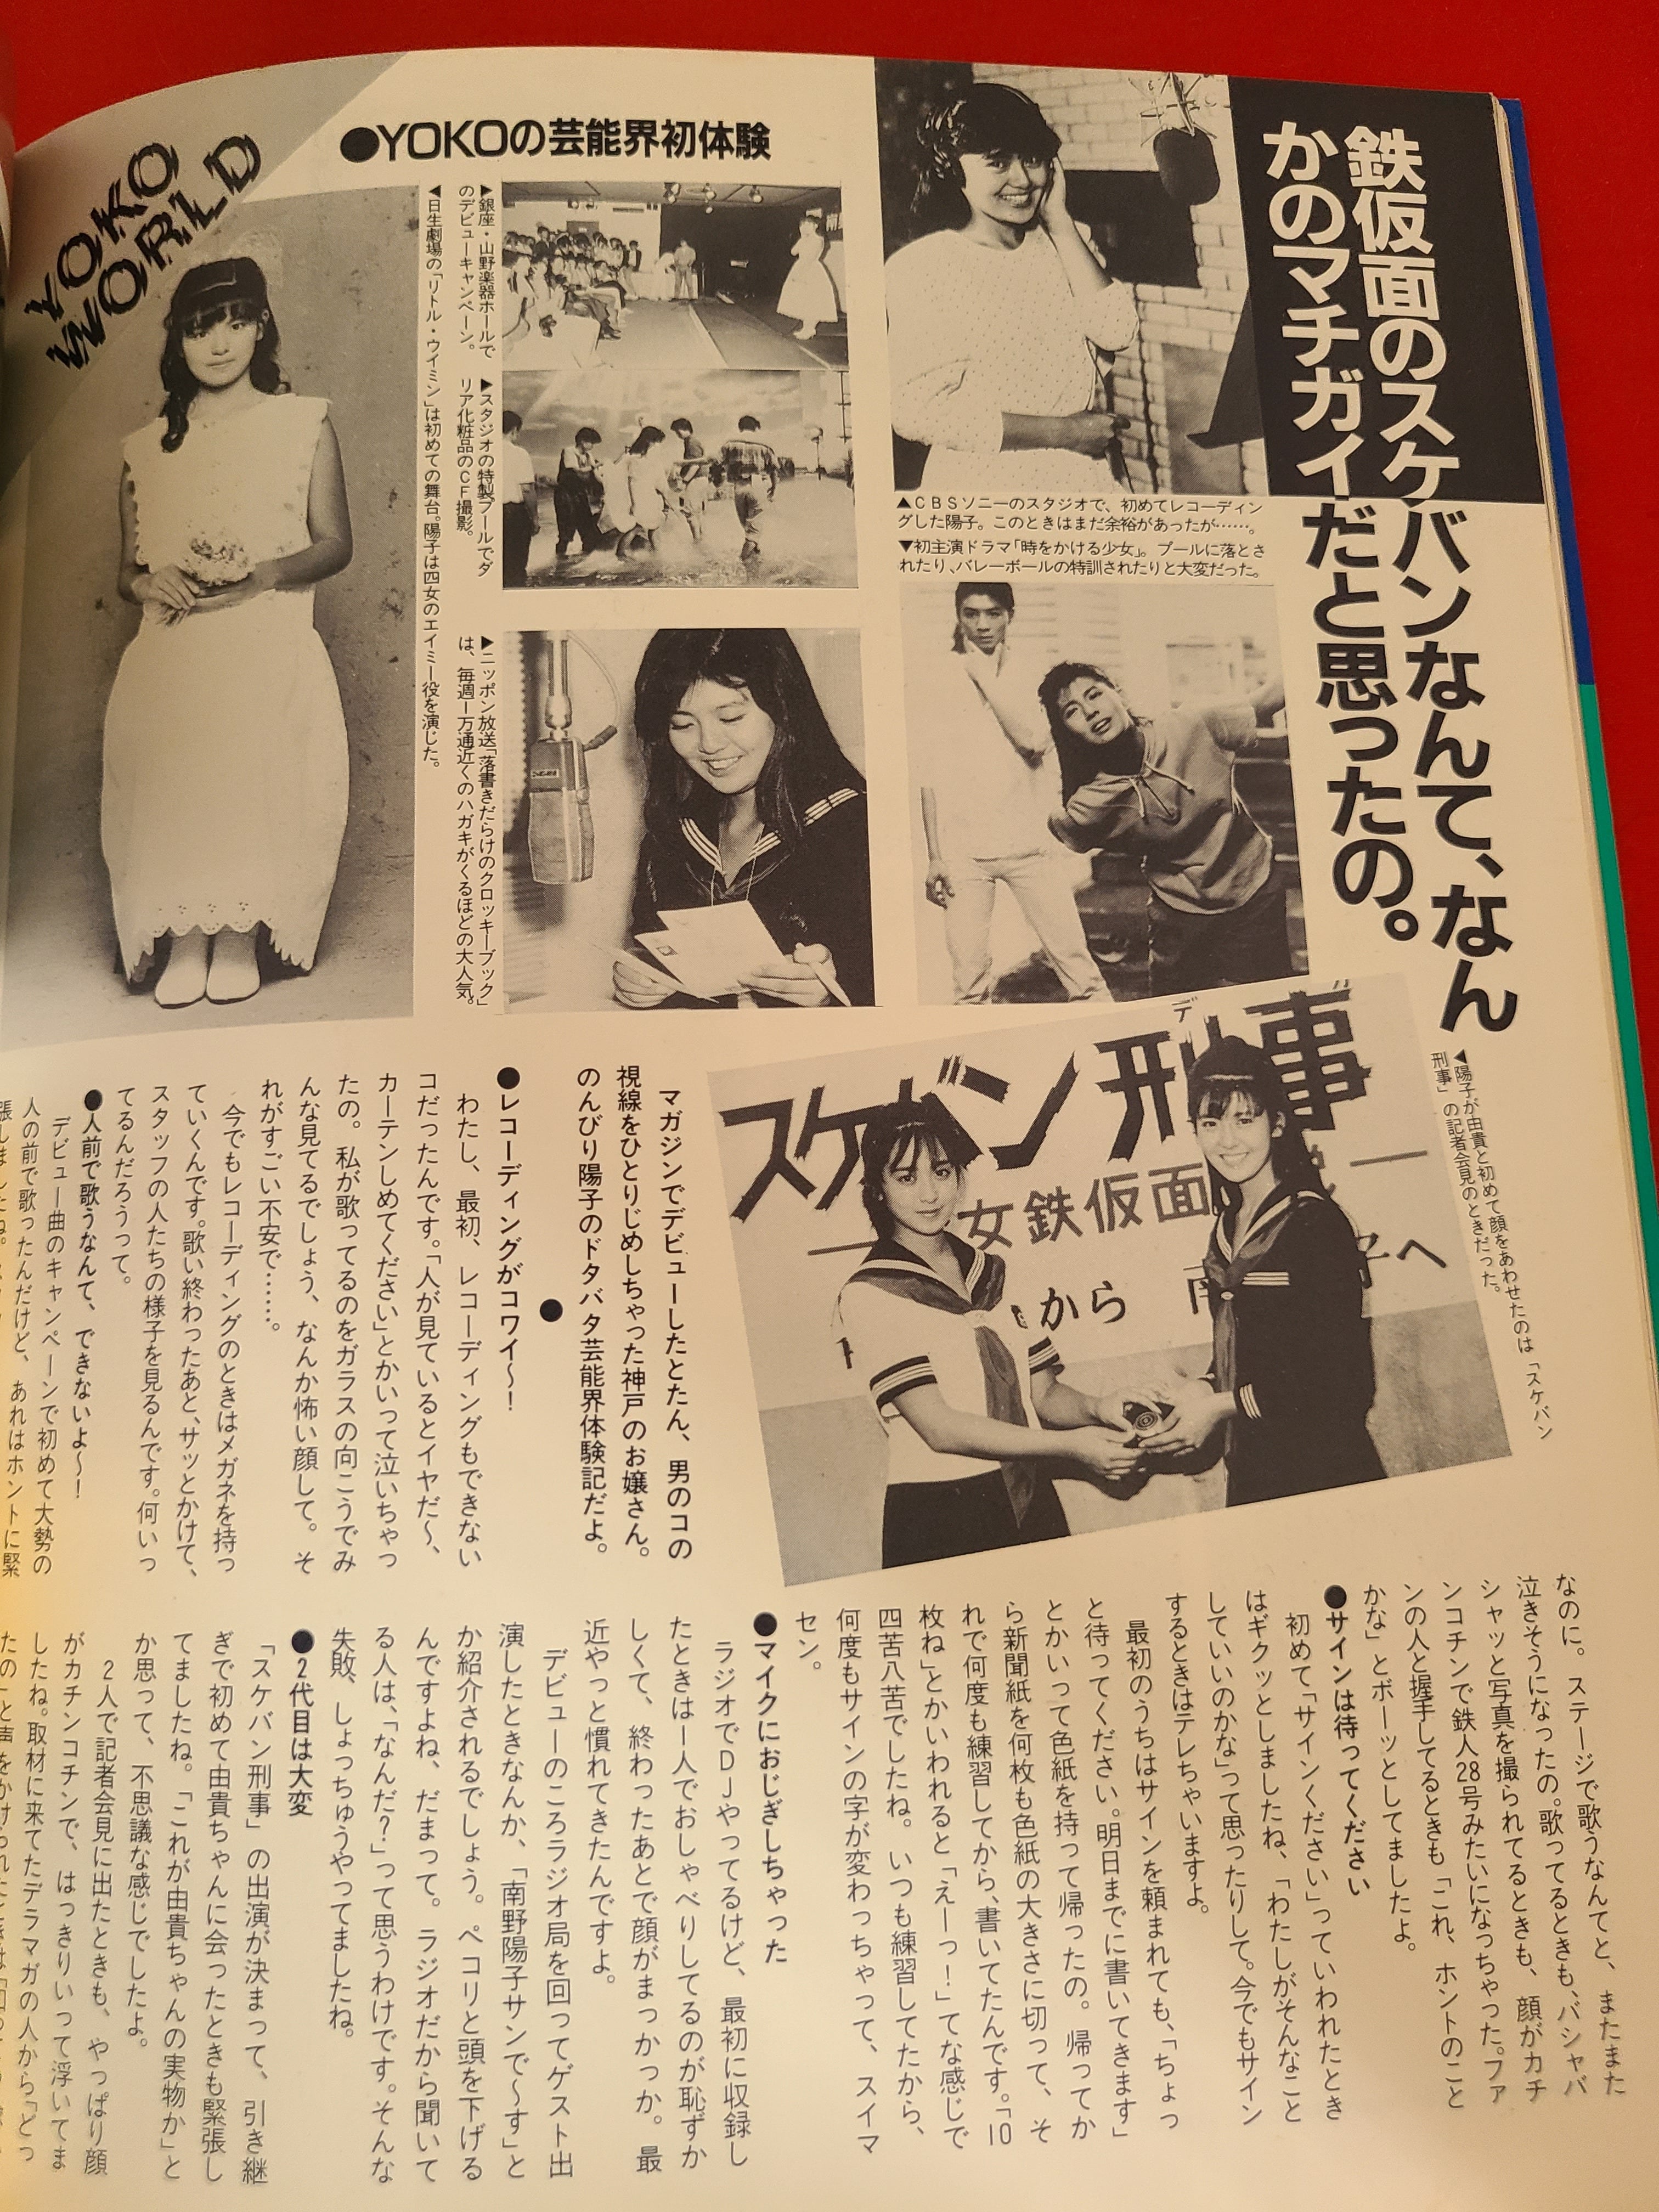 鉄仮面のスケバンなんて、なん
かのマチガイだと思ったの。
▲CBSソニーのスタジオで、初めてレコーディン
グした陽子。このときはまだ余裕があったが……。
▼初主演ドラマ「時をかける少女」。プールに落とさ
れたり、バレーボールの特訓されたりと大変だった。
●YOKOの芸能界初体験
▶銀座・山野楽器ホールで
のデビューキャンペーン。
▶スタジオの特製プールでダ
リア化粧品のCF撮影。
▶ニッポン放送「落書きだらけのクロッキーブック」
は、毎週一万通近くのハガキがくるほどの大人気。
◀日生劇場の「リトル・ウイミン」は初めての舞台。陽子は四女のエイミー役を演じた。
YOKO
WORLD
◀陽子が由貴と初めて顔をあわせたのは「スケバン
刑事」の記者会見のときだった。
スケバン刑事
デ
女鉄仮面
から
子へ
マガジンでデビューしたとたん、男のコの
視線をひとりじめしちゃった神戸のお嬢さん。
のんびり陽子のドタバタ芸能界体験記だよ。
●
●レコーディングがコワイ〜！
わたし、最初、レコーディングもできない
コだったんです。「人が見ているとイヤだ〜、
カーテンしめてください」とかいって泣いちゃっ
たの。私が歌ってるのをガラスの向こうでみ
んな見てるでしょう、なんか怖い顔して。そ
れがすごい不安で……。
今でもレコーディングのときはメガネを持っ
ていくんです。歌い終わったあと、サッとかけて、
スタッフの人たちの様子を見るんです。何いっ
てるんだろうって。
●人前で歌うなんて、できないよ〜！
デビュー曲のキャンペーンで初めて大勢の
人の前で歌ったんだけど、あれはホントに緊
なのに。ステージで歌うなんてと、またまた
泣きそうになったの。歌ってるときも、バシャバ
シャッと写真を撮られてるときも、顔がカチ
ンコチンで鉄人28号みたいになっちゃった。ファ
ンの人と握手してるときも「これ、ホントのこと
かな」とボーッとしてましたよ。
●サインは待ってください
初めて「サインください」っていわれたとき
はギクッとしましたね、「わたしがそんなこと
していいのかな」って思ったりして。今でもサイン
するときはテレちゃいますよ。
最初のうちはサインを頼まれても、「ちょっ
と待ってください。明日までに書いてきます」
とかいって色紙を持って帰ったの。帰ってか
ら新聞紙を何枚も色紙の大きさに切って、そ
れで何度も練習してから、書いてたんです。「10
枚ね」とかいわれると「えーっ！」てな感じで
四苦八苦でしたね。いつも練習してたから、
何度もサインの字が変わっちゃって、スイマ
セン。
●マイクにおじぎしちゃった
ラジオでDJやってるけど、最初に収録し
たときは一人でおしゃべりしてるのが恥ずか
しくて、終わったあとで顔がまっかっか。最
近やっと慣れてきたんですよ。
デビューのころラジオ局を回ってゲスト出
演したときなんか、「南野陽子サンで〜す」と
か紹介されるでしょう。ペコリと頭を下げる
んですよね、だまって。ラジオだから聞いて
る人は、「なんだ？」って思うわけです。そんな
失敗、しょっちゅうやってましたね。
●2代目は大変
「スケバン刑事」の出演が決まって、引き継
ぎで初めて由貴ちゃんに会ったときも緊張し
てましたね。「これが由貴ちゃんの実物か」と
か思って、不思議な感じでしたよ。
2人で記者会見に出たときも、やっぱり顔
がカチンコチンで、はっきりいって浮いてま
したね。取材に来てたデラマガの人から「どっ